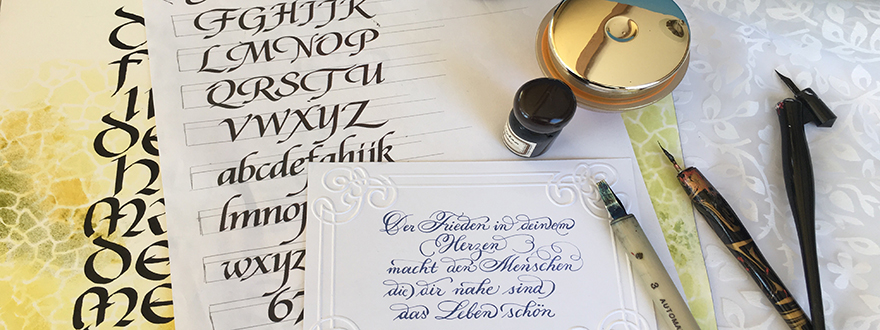 FGHIJK
LMNOP
QRSTU
VWXYZ
abcdefghijk
lmno
wxyz
67
Der Frieden in deinem
Herzen
macht den Menschen
die dir nahe sind
das Leben schön
3 AUTOMA